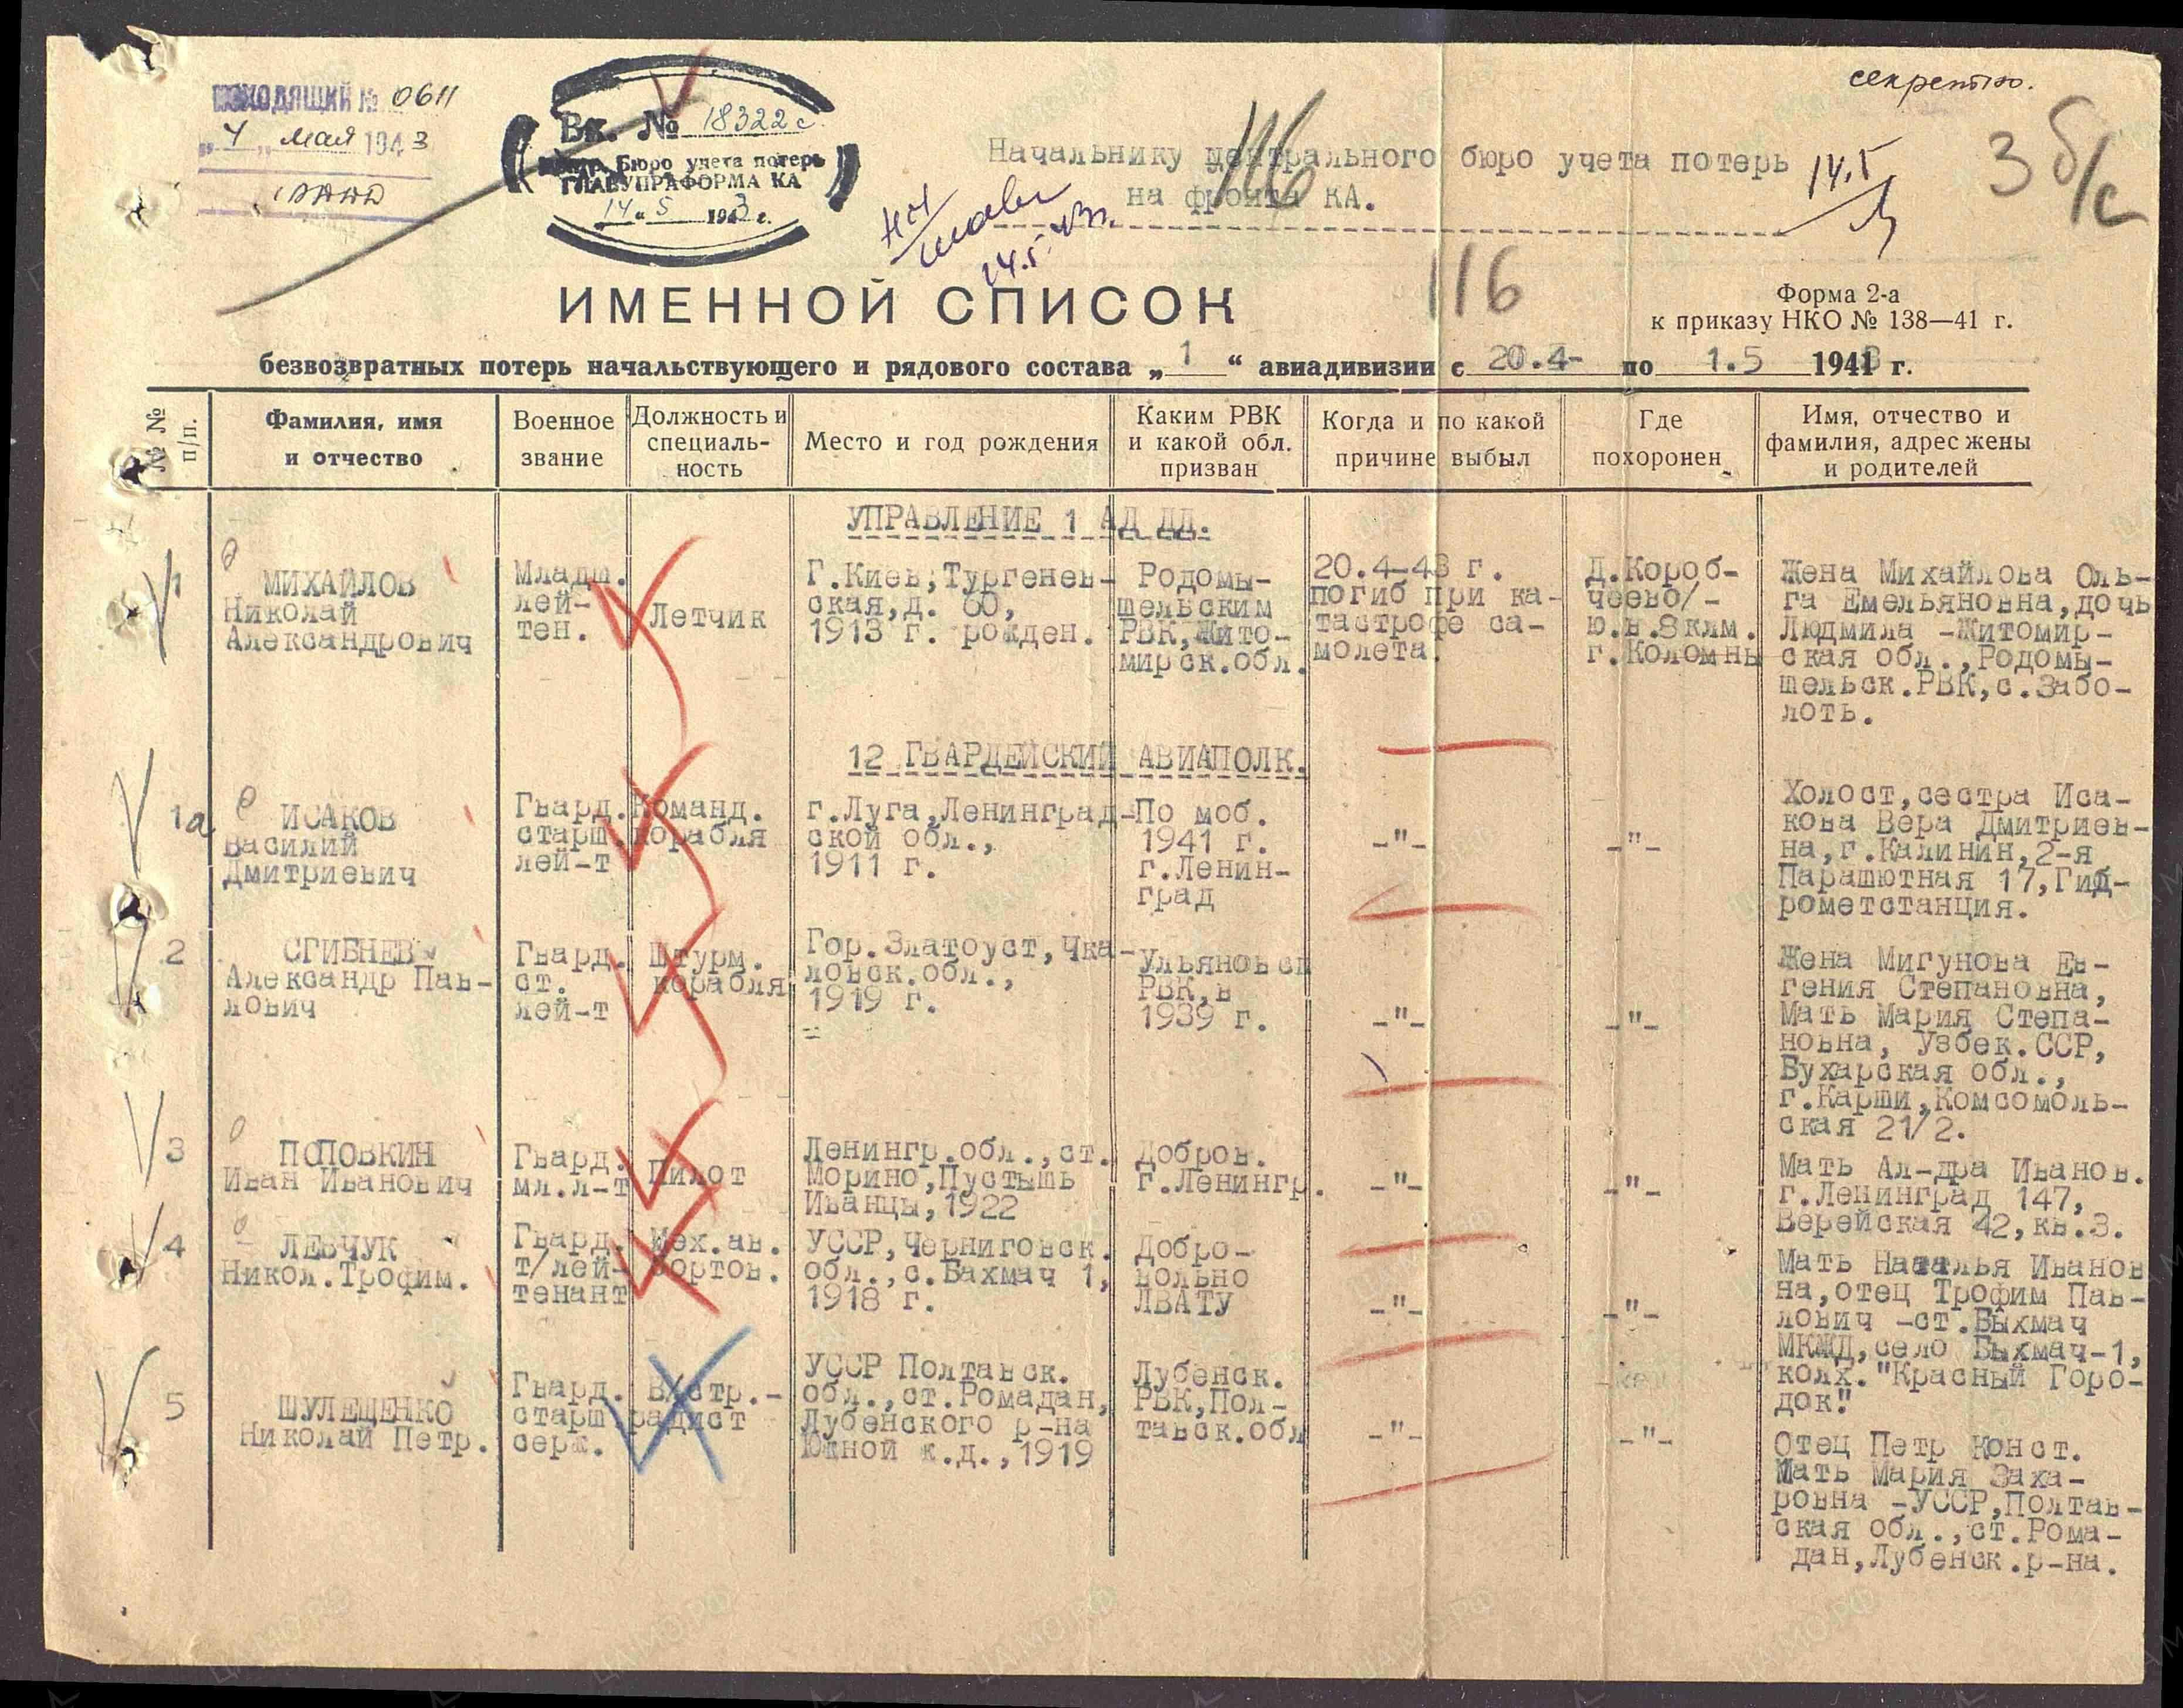 секретно.
ИСХОДЯЩИЙ № 0611
"4" мая 1943
Вх. № 18322с
Бюро учета потерь
ГЛАВУПРАФОРМА КА
14 " 5 1943 г.
116
Начальнику центрального бюро учета потерь
на фронта КА.
14.5
3 б/с
14.5.43г.
116
ИМЕННОЙ СПИСОК
Форма 2-а
к приказу НКО № 138—41 г.
безвозвратных потерь начальствующего и рядового состава „ 1 “ авиадивизии с 20.4- по 1.5 1943 г.
№ № п/п.
Фамилия, имя
и отчество
Военное
звание
Должность и
специаль-
ность
Место и год рождения
Каким РВК
и какой обл.
призван
Когда и по какой
причине выбыл
Где
похоронен
Имя, отчество и
фамилия, адрес жены
и родителей
УПРАВЛЕНИЕ 1 АД ДД.
1
МИХАЙЛОВ
Николай
Александрович
Младш.
лей-
тен.
Летчик
Г.Киев,Тургенев-
ская,д. 60,
1913 г. рожден.
Родомы-
шельским
РВК,Жито-
мирск.обл.
20.4-43 г.
погиб при ка-
тастрофе са-
молета.
Д.Короб-
чеево/-
ю.в.8клм.
г.Коломны
Жена Михайлова Оль-
га Емельяновна,дочь
Людмила -Житомир-
ская обл.,Родомы-
шельск.РВК,с.Забо-
лоть.
12 ГВАРДЕЙСКИЙ АВИАПОЛК.
1а
ИСАКОВ
Василий
Дмитриевич
Гвард.
старш.
лей-т
Команд.
корабля
г.Луга,Ленинград-
ской обл.,
1911 г.
По моб.
1941 г.
г.Ленин-
град
-"-
-"-
Холост,сестра Иса-
кова Вера Дмитриев-
на,г.Калинин,2-я
Парашютная 17,Гид-
рометстанция.
2
СГИБНЕВ
Александр Пав-
лович
Гвард.
ст.
лей-т
Штурм.
корабля
Гор.Златоуст,Чка-
ловск.обл.,
1919 г.
Ульяновск
РВК,в
1939 г.
-"-
-"-
Жена Мигунова Ев-
гения Степановна,
Мать Мария Степа-
новна, Узбек.ССР,
Бухарская обл.,
г.Карши,Комсомоль-
ская 21/2.
3
ПОПОВКИН
Иван Иванович
Гвард.
мл.л-т
Пилот
Ленингр.обл.,ст.
Морино,Пустышь
Иванцы,1922
Добров.
г.Ленингр.
-"-
-"-
Мать Ал-дра Иванов.
г.Ленинград 147,
Верейская 42,кв.3.
4
ЛЕВЧУК
Никол.Трофим.
Гвард.
т/лей-
тенант
Мех.ав.
бортов.
УССР,Черниговск.
обл.,с.Бахмач 1,
1918 г.
Добро-
вольно
ЛВАТУ
-"-
-"-
Мать Наталья Иванов
на,отец Трофим Пав-
лович -ст.Быхмач
МКЖД,село Быхмач-1,
колх."Красный Горо-
док".
5
ШУЛЕЩЕНКО
Николай Петр.
Гвард.
старш
серж.
В/стр.-
радист
УССР Полтавск.
обл.,ст.Ромадан,
Лубенского р-на
Южной ж.д.,1919
Лубенск.
РВК,Пол-
тавск.обл
-"-
-"-
Отец Петр Конст.
Мать Мария Заха-
ровна -УССР,Полтав-
ская обл.,ст.Рома-
дан,Лубенск.р-на.